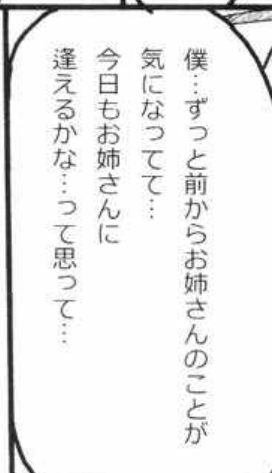 僕…ずっと前からお姉さんのことが
気になってて…
今日もお姉さんに
逢えるかな…って思って…